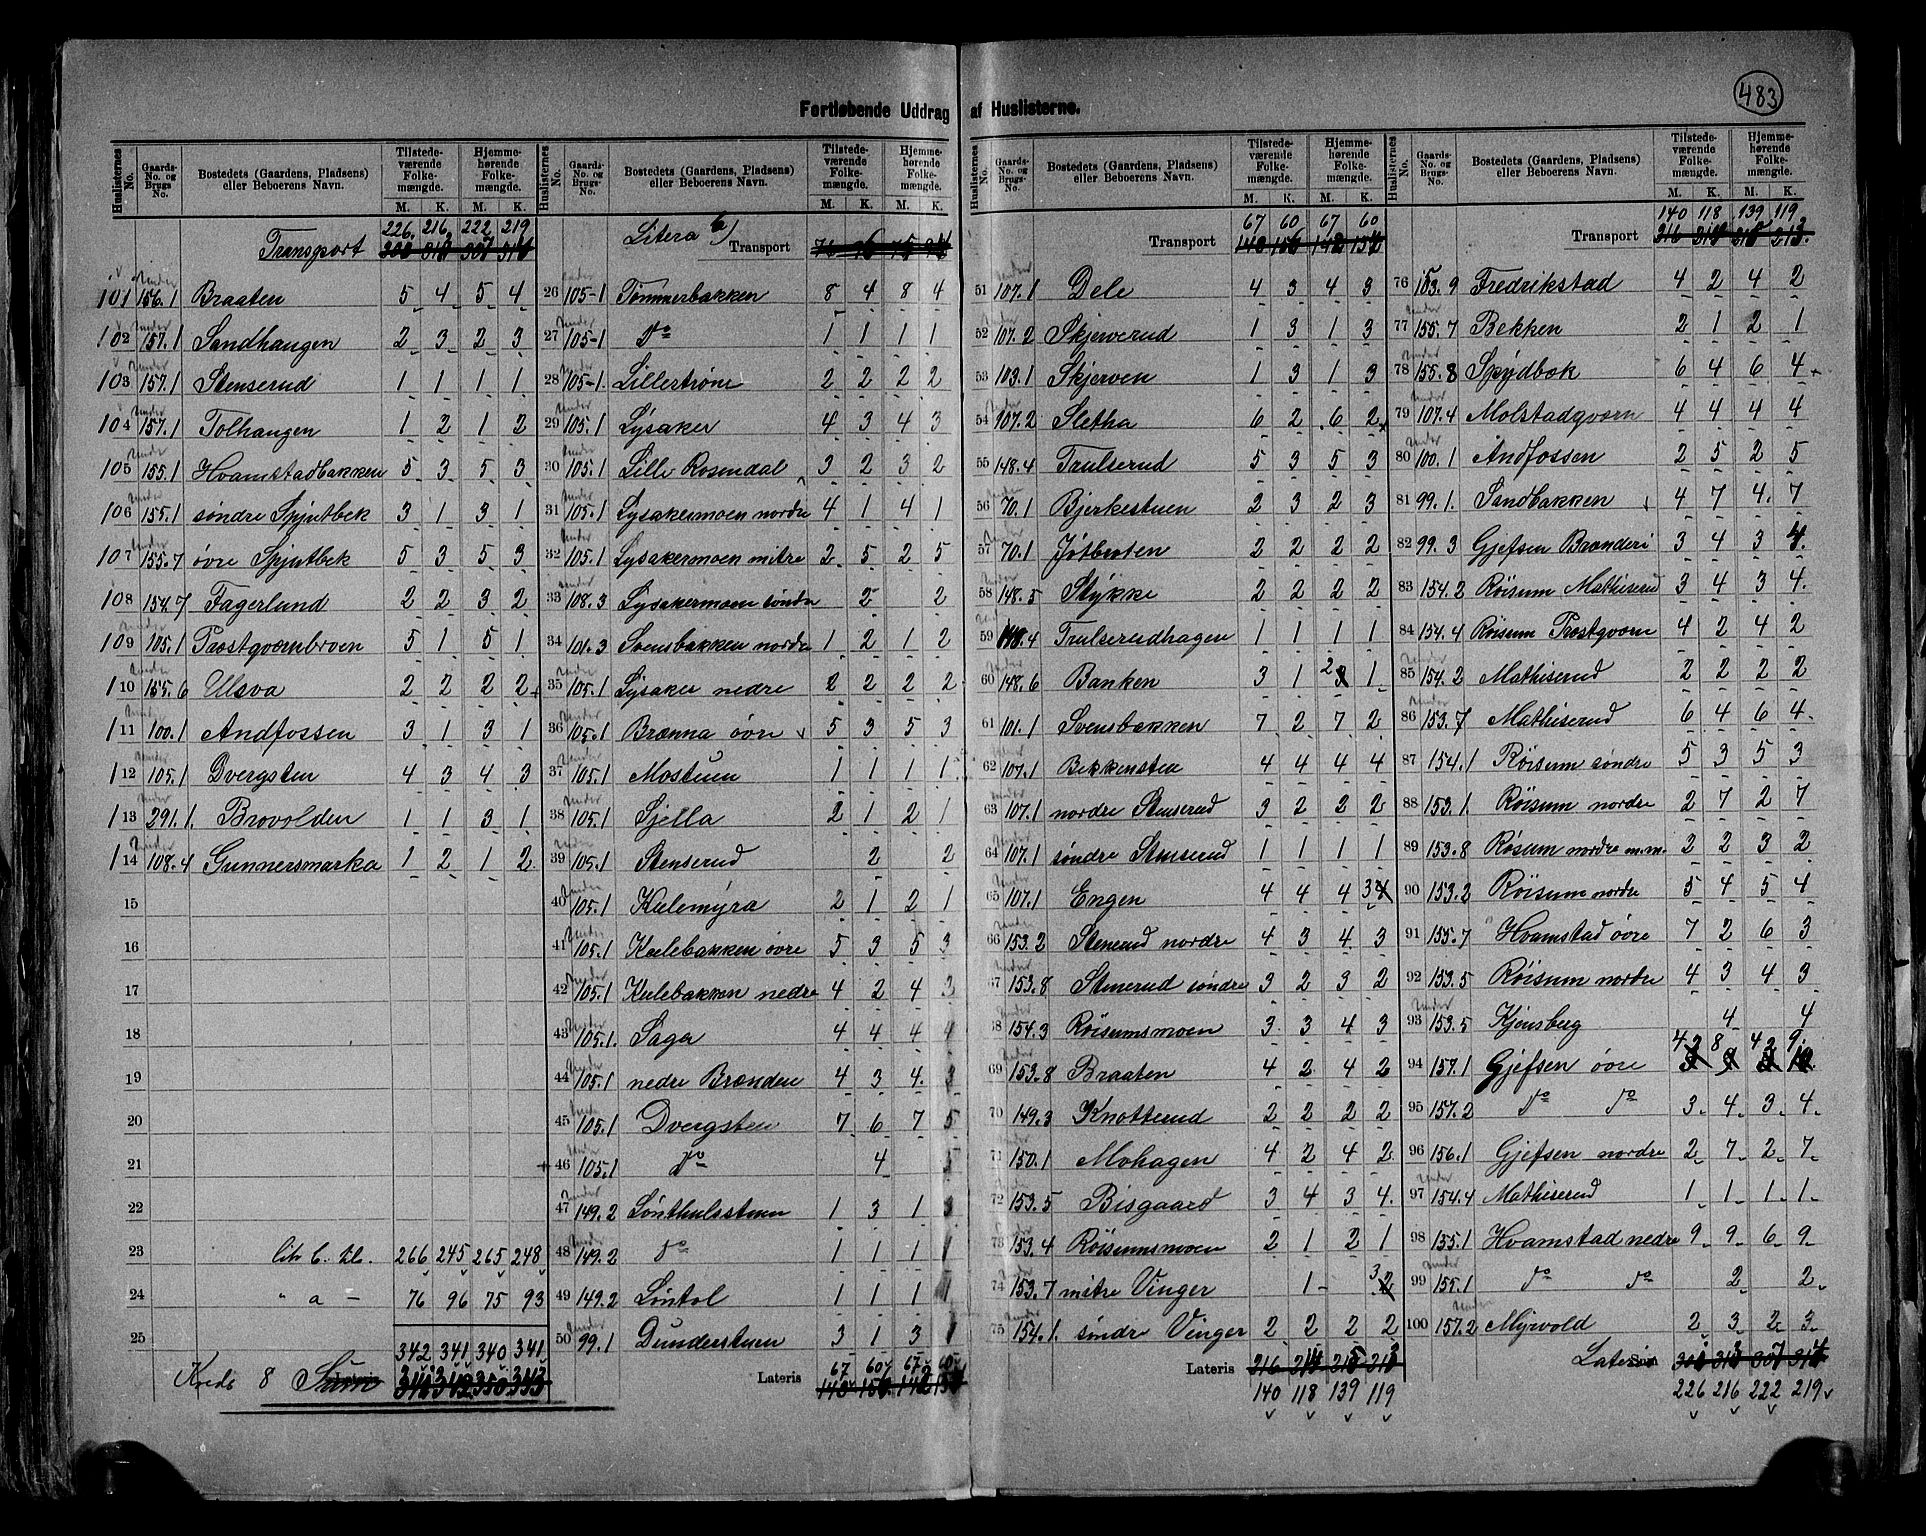 483
Fortløbende Uddrag af Huslisterne.
Huslisternes No. Gaards-No. og Brugs-No. Bostedets (Gaardens, Pladsens) eller Beboerens Navn. Tilstedeværende Folkemængde. M. K. Hjemmehørende Folkemængde. M. K.
226. 216 222 219
Transport
101 under 156.1 Braaten 5 4 5 4
102 under 157.1 Sandhaugen 2 3 2 3
103 157.1 Stenserud 1 1 1 1
104 under 157.1 Tolhaugen 1 2 1 2
105 under 155.1 Hvamstadbakken 5 3 5 3
106 under 155.1 søndre Spjutbek 3 1 3 1
107 under 155.7 øvre Spjutbek 5 3 5 3
108 154.7 Fagerlund 2 2 3 2
109 under 105.1 Prostqværnbroen 5 1 5 1
110 under 155.6 Ulsva 2 2 2 2
111 under 100.1 Andfossen 3 1 3 1
112 under 105.1 Dvergsten 4 3 4 3
113 under 291.1. Brovolden 1 1 3 1
114 under 108.4 Gunnersmarka 1 2 1 2
15
16
17
18
19
20
21
22
23 litr b. tl. 266 245 265 248
24 " a - 76 96 75 93
25 342 341 340 341
Kreds 8 Sum
Huslisternes No. Gaards-No. og Brugs-No. Bostedets (Gaardens, Pladsens) eller Beboerens Navn. Tilstedeværende Folkemængde. M. K. Hjemmehørende Folkemængde. M. K.
Litera b) Transport
26 under 105-1 Tømmerbakken 8 4 8 4
27 under 105-1 do 1 1 1 1
28 under 105-1. Lillestrøm 2 2 2 2
29 under 105.1 Lysaker 4 3 4 3
30 under 105.1 Lille Rosendal 3 2 3 2
31 under 105.1 Lysakermoen nordre 4 1 4 1
32 under 105.1 Lysakermoen mitre 2 5 2 5
33 under 108.3 Lysakermoen søndre 2 2
34 101.3 Svensbakken nordre 1 2 1 2
35 under 105.1 Lysaker nedre 2 2 2 2
36 under 105.1 Brænna øvre 5 3 5 3
37 under 105.1 Mostuen 1 1 1 1
38 under 105.1 Sjella 2 1 2 1
39 under 105.1 Stenserud 2 2
40 under 105.1 Kulemyra 2 1 2 1
41 under 105.1 Kulebakken øvre 5 3 5 3
42 under 105.1 Kulebakken nedre 4 2 4 3
43 under 105.1. Saga 4 4 4 4
44 under 105.1 nedre Brænden 4 3 4. 3
45 under 105.1 Dvergsten 7 6 7 5
46 105.1 do 4 5
47 under 149.2 Lønthulsstuen 1 3 1 3
48 under 149.2 do 1 1 1 1
49 149.2 Løntol 1 1 1 1
50 under 99.1 Dunderstuen 3 1 3 1
Lateris 67 60 67 60
Huslisternes No. Gaards-No. og Brugs-No. Bostedets (Gaardens, Pladsens) eller Beboerens Navn. Tilstedeværende Folkemængde. M. K. Hjemmehørende Folkemængde. M. K.
67 60 67 60
Transport
51 under 107.1 Dele 4 3 4 3
52 under 107.2 Skjerverud 1 3 1 3
53 103.1 Skjerven 1 3 1 3
54 under 107.2 Sletha 6 2 6 2
55 148.4 Trulserud 5 3 5 3
56 under 70.1 Bjerkestuen 2 3 2 3
57 under 70.1 Jøtbroten 2 2 2 2
58 under 148.5 Stykke 2 2 2 2
59 under 148.4 Trulserudhagen 1 1 1 1
60 under 148.6 Banken 3 1 2 1
61 101.1 Svensbakken 7 2 7 2
62 107.1 Bekkenstea 4 4 4 4
63 under 107.1 nordre Stenserud 3 2 2 2
64 under 107.1 søndre Stenserud 1 1 1 1
65 under 107.1 Engen 4 4 4 3
66 under 153.2 Stenerud nordre 4 3 4 3
67 under 153.8 Stenerud søndre 3 2 3 2
68 under 154.3 Røisumsmoen 3 3 4 3
69 under 153.8 Braaten 4 2 4 2
70 149.3 Knotterud 2 2 2 2
71 150.1 Mohagen 4 2 4 2
72 153.5 Bisgaard 3 4 3 4.
73 153.4 Røisumsmoen 2 1 2 1
74 153.7 mitre Vinger 1 - 3
75 under 154.1. søndre Vinger 2 2 2 2
Lateris
140 118 139 119
Huslisternes No. Gaards-No. og Brugs-No. Bostedets (Gaardens, Pladsens) eller Beboerens Navn. Tilstedeværende Folkemængde. M. K. Hjemmehørende Folkemængde. M. K.
140 118 139 119
Transport
76 under 153.9 Fredrikstad 4 2 4 2
77 under 155.7 Bekken 2 1 2 1
78 under 155.8 Spydbæk 6 4 6 4
79 under 107.4 Molstadqværn 4 4 4 4
80 under 100.1 Andfossen 2 5 2 5
81 99.1. Sandbakken 4 7 4. 7
82 99.3 Gjefsen Brænderi 3 4 3 4.
83 154.2 Røisum Mathiserud 3 4 3 4.
84 154.4 Røisum Prostqværn 4 2 4 2
85 under 154.2 Mathiserud 2 2 2 2
86 under 153.7 Mathiserud 6 4 6 4.
87 154.1 Røisum søndre 5 3 5 3
88 153.1. Røisum nordre 2 7 2 7
89 153.8 Røsum nordre m.m. 2 2 3 2
90 153.2 Røisum nordre 5 4 5 4
91 155.7 Hvamstad øvre 7 2 6 3
92 153.5 Røisum nordre 4 3 4 3
93 under 153.5 Kjensberg 4 4
94 157.1 Gjefsen øvre 42 8 42 9
95 157.2 do do 3. 4. 3. 4.
96 156.1 Gjefsen nordre 2 7 2 7
97 under 154.4 Mathiserud 1 1 1 1
98 155.1 Hvamstad nedre 9 9 6 9
99 under 155.1 do do 2 2
100 under 157.2 Myrvold 2 3 2 3
Lateris
226 216 222 219